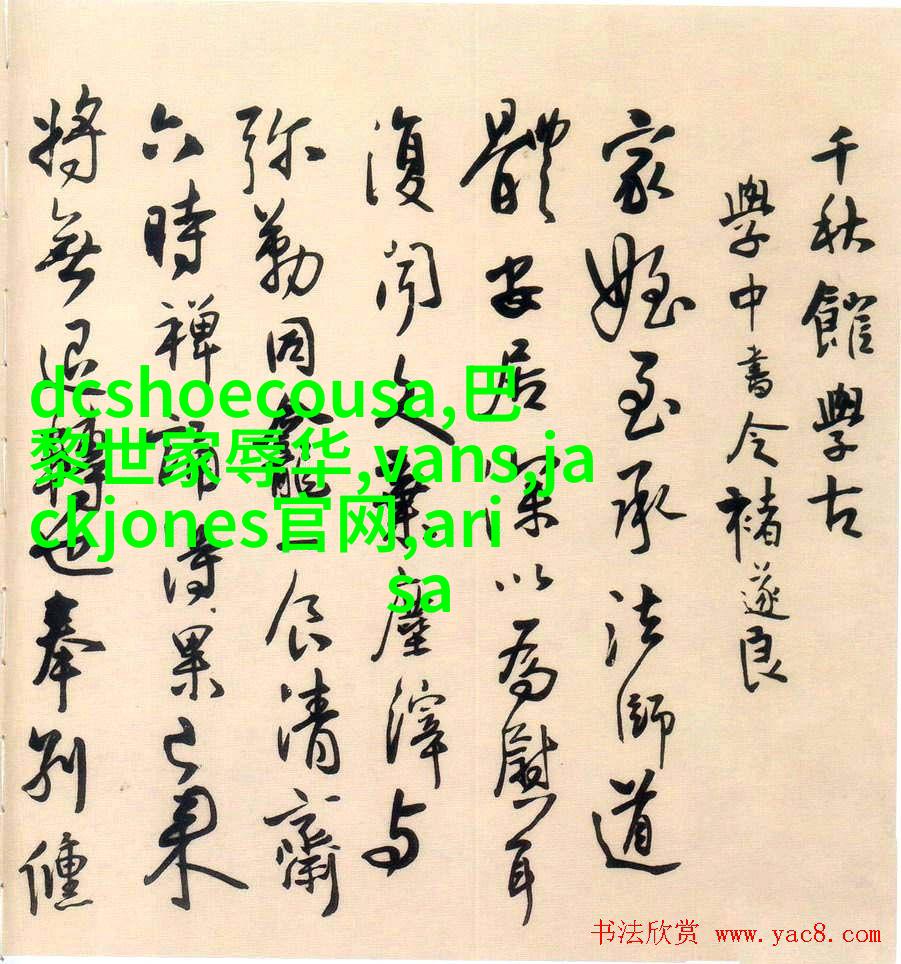 千秋館學古
學中書令褚遂良
家姪至承法師道
體安居深以為慰耳
復聞久棄塵滓与
弥勒同龕一食清齋
六時禪誦得果已來
將無退轉也奉別儵
dcshoecousa,巴
黎世家辱华,vans,ja
ckjones官网,ari
sa
书法欣赏 www.yac8.com